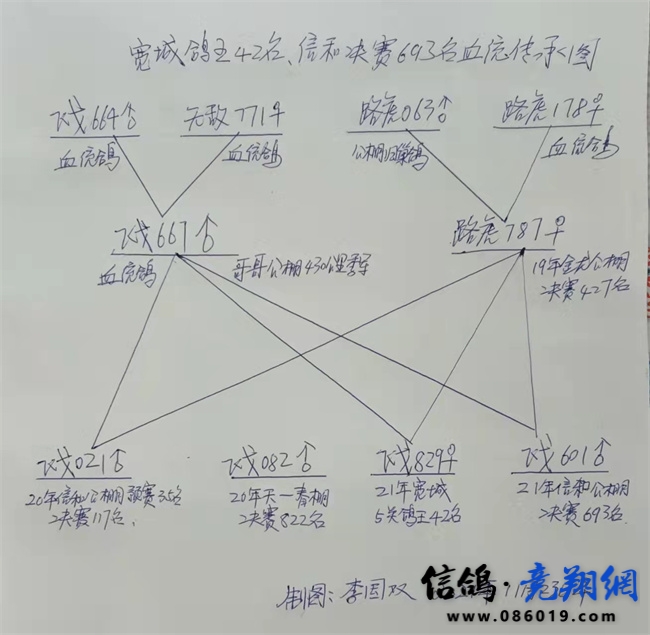 宽城鸽王42名、信和决赛693名血统传承图
飞戈664♂
无敌771♀
路虎063♂
路虎178♀
血统鸽
血统鸽
公棚归巢鸽
血统鸽
飞戈667♂
路虎787♀
血统鸽
哥哥公棚430公里季军
19年金龙公棚
决赛427名
飞戈021♂
飞戈082♂
飞戈829♀
飞戈601♂
20年信和公棚预赛35名
决赛117名、
20年天一春棚
决赛822名
21年宽城
5关鸽王42名
21年信和公棚
决赛693名
制图：李国双
信鸽·竞翔網
www.086019.com